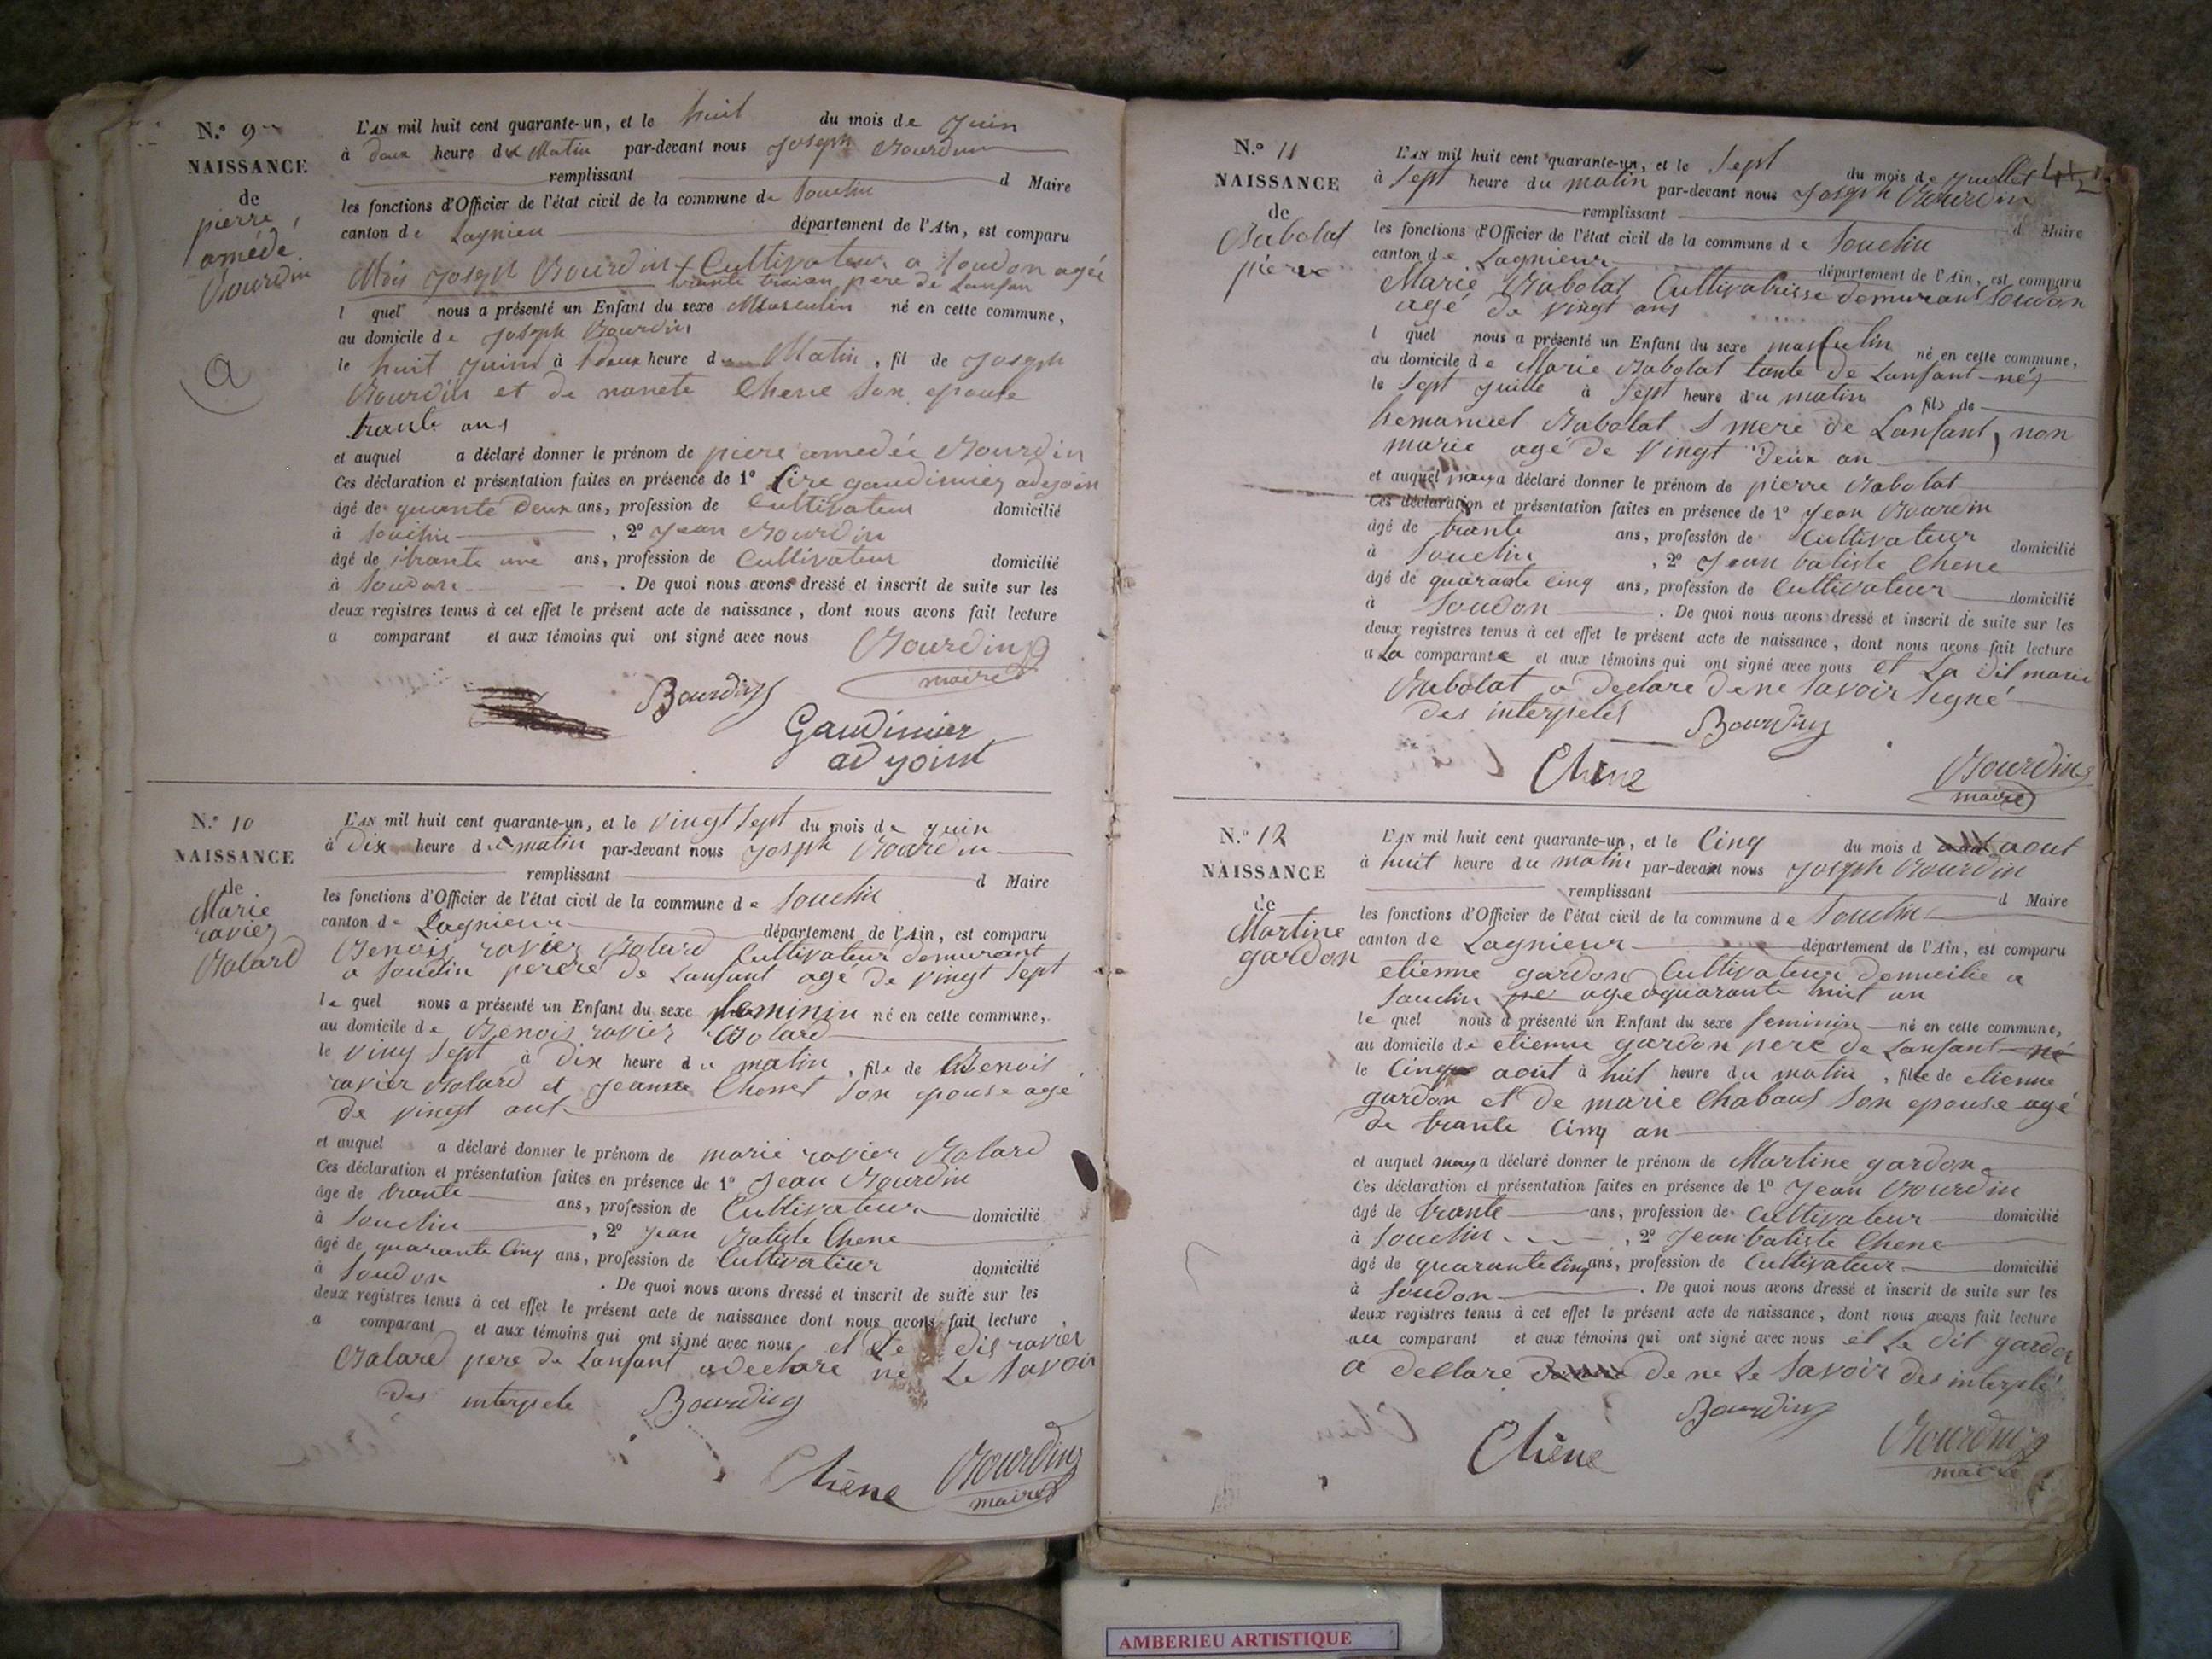 N.° 9
NAISSANCE
de
pierre
amédé
Bourdin
L'AN mil huit cent quarante-un, et le huit du mois de Juin
à deux heure du Matin par-devant nous Joseph Bourdin
remplissant d Maire
les fonctions d'Officier de l'état civil de la commune de Souclin
canton de Lagnieu département de l'Ain, est comparu
Joseph Bourdin Cultivateur a Soudon agée
père de Lanfan
l quel nous a présenté un Enfant du sexe Masculin né en cette commune,
au domicile de Joseph Bourdin
le huit Juin à deux heure du Matin, fil de Joseph
Bourdin et de nanete Chene son epouse
trante ans
et auquel a déclaré donner le prénom de piere amedée Bourdin
Ces déclaration et présentation faites en présence de 1° gaudimier adyoin
âgé de quante Deux ans, profession de Cultivateur domicilié
à Souclin, 2° Jean Bourdin
âgé de trante une ans, profession de Cultivateur domicilié
à Soudon. De quoi nous avons dressé et inscrit de suite sur les
deux registres tenus à cet effet le présent acte de naissance, dont nous avons fait lecture
a comparant et aux témoins qui ont signé avec nous
Bourdin
maire
Bourdin
Gaudimier
adyoint
N.° 10
NAISSANCE
de
Marie
ravier
Balard
L'AN mil huit cent quarante-un, et le vingt Sept du mois de Juin
à Dix heure du matin par-devant nous Joseph Bourdin
remplissant d Maire
les fonctions d'Officier de l'état civil de la commune de Souclin
canton de Lagnieur département de l'Ain, est comparu
Benois ravier Balard Cultivateur demurant
a Souclin perere de Lanfant agé de vingt Sept
le quel nous a présenté un Enfant du sexe feminin né en cette commune,
au domicile de Benois ravier Bolard
le ving Sept à Dix heure du matin, file de Benois
ravier Bolard et Jeanne Chenet Son epouse age
de vingt
et auquel a déclaré donner le prénom de marie ravier Balard
Ces déclaration et présentation faites en présence de 1° Jean Bourdin
âge de trante ans, profession de Cultivateur domicilié
à Souclin, 2° Jean Batiste Chene
âgé de quarante Cinq ans, profession de Cultivatieur domicilié
à Soudon. De quoi nous avons dressé et inscrit de suite sur les
deux registres tenus à cet effet le présent acte de naissance dont nous avons fait lecture
a comparant et aux témoins qui ont signé avec nous et Le dis ravier
Balard pere de Lanfant a declare ne Le Savoir
des interpele Bourdin
Chène Bourdin
maire
N.° 11
NAISSANCE
de
Babolat
pierre
L'AN mil huit cent quarante-un, et le Sept du mois de Juellet
à Sept heure du matin par-devant nous Joseph Bourdin
remplissant d Maire
les fonctions d'Officier de l'état civil de la commune de Souclin
canton de Lagnieur département de l'Ain, est comparu
Marie Babolat Cultivatrisse demurant Soudon
agé de vingt ans
l quel nous a présenté un Enfant du sexe masculin né en cette commune,
au domicile de Marie Babolat tante de Lanfant né
le Sept Juille à Sept heure du matin fils de
hemanuel Babolat mere de Lanfant, non
marie agé de Vingt Deux an
et auquel a déclaré donner le prénom de pierre Babolat
Ces déclaration et présentation faites en présence de 1° Jean Bourdin
âgé de trante ans, profession de Cultivateur domicilié
à Souclin, 2° Jean batiste Chene
âgé de quarante Cinq ans, profession de Cultivateur domicilié
à Soudon. De quoi nous avons dressé et inscrit de suite sur les
deux registres tenus à cet effet le présent acte de naissance, dont nous avons fait lecture
a La comparante et aux témoins qui ont signé avec nous et La dit marie
Babolat a declare De ne Savoir Segné
des interpelés Bourdin
Chene
Bourdin
maire
N.° 12
NAISSANCE
de
Martine
gardon
L'AN mil huit cent quarante-un, et le Cinq du mois d aout
à huit heure du matin par-devant nous Joseph Bourdin
remplissant d Maire
les fonctions d'Officier de l'état civil de la commune de Souclin
canton de Lagnieur département de l'Ain, est comparu
etienne gardon Cultivateur Domicilie a
Souclin agé quarante huit an
le quel nous a présenté un Enfant du sexe feminin né en cette commune,
au domicile de etienne gardon pere de Lanfant né
le Cinq aout à huit heure du matin, fille de etienne
gardon et De marie Chabous Son epouse agé
de trante Cinq an
et auquel a déclaré donner le prénom de Martine gardon
Ces déclaration et présentation faites en présence de 1° Jean Bourdin
âgé de trante ans, profession de Cultivateur domicilié
à Souclin, 2° Jean batiste Chene
âgé de quarante Cinq ans, profession de Cultivateur domicilié
à Soudon. De quoi nous avons dressé et inscrit de suite sur les
deux registres tenus à cet effet le présent acte de naissance, dont nous avons fait lecture
au comparant et aux témoins qui ont signé avec nous et Le dit gardon
a declare De ne Le Savoir des interpelé
Bourdin
Chène
Bourdin
maire
AMBERIEU ARTISTIQUE